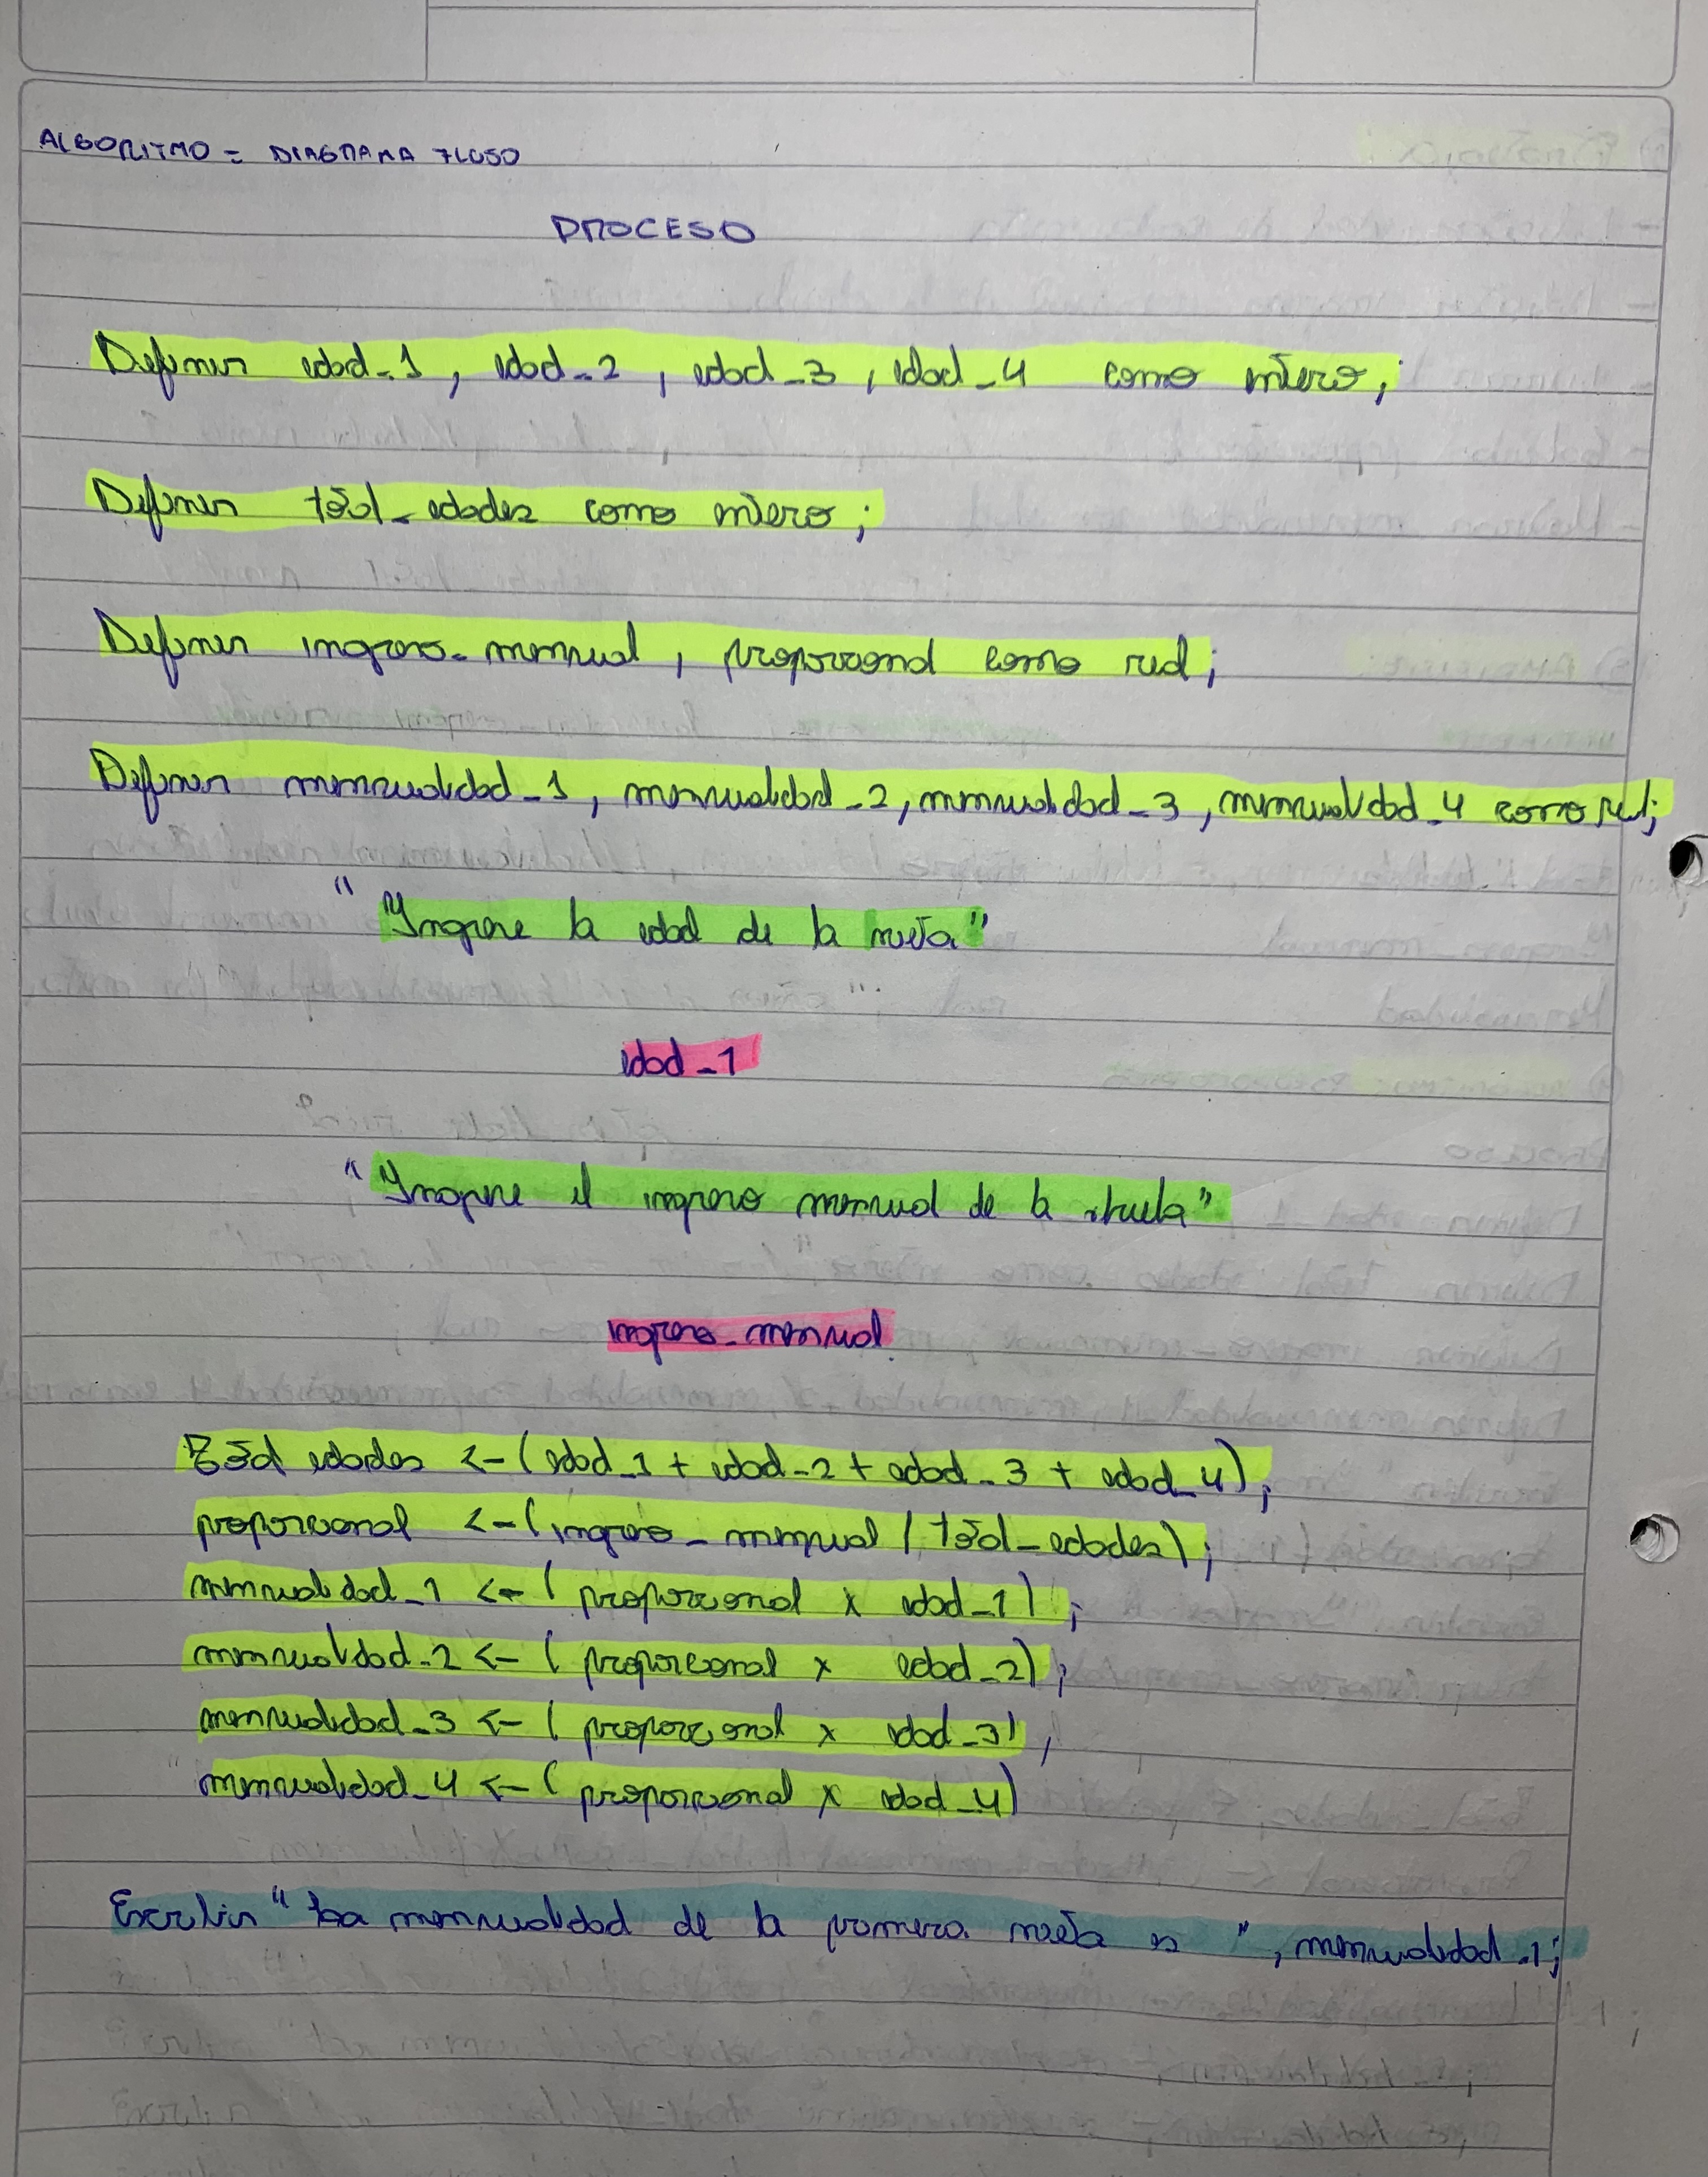 ALGORITMO = DIAGRAMA FLUJO
PROCESO
Definir edad_1, edad_2, edad_3, edad_4 como entero;
Definir total_edades como entero;
Definir ingreso_mensual, proporcional como real;
Definir mensualidad_1, mensualidad_2, mensualidad_3, mensualidad_4 como real;
" "Ingrese la edad de la nieta"
edad_1
" "Ingrese el ingreso mensual de la abuela"
ingreso_mensual
Total edades <- (edad_1 + edad_2 + edad_3 + edad_4);
proporcional <- (ingreso_mensual / total_edades);
mensualidad_1 <- (proporcional x edad_1);
mensualidad_2 <- (proporcional x edad_2);
mensualidad_3 <- (proporcional x edad_3),
mensualidad_4 <- (proporcional x edad_4)
Escribir "La mensualidad de la primera nieta es ", mensualidad_1;